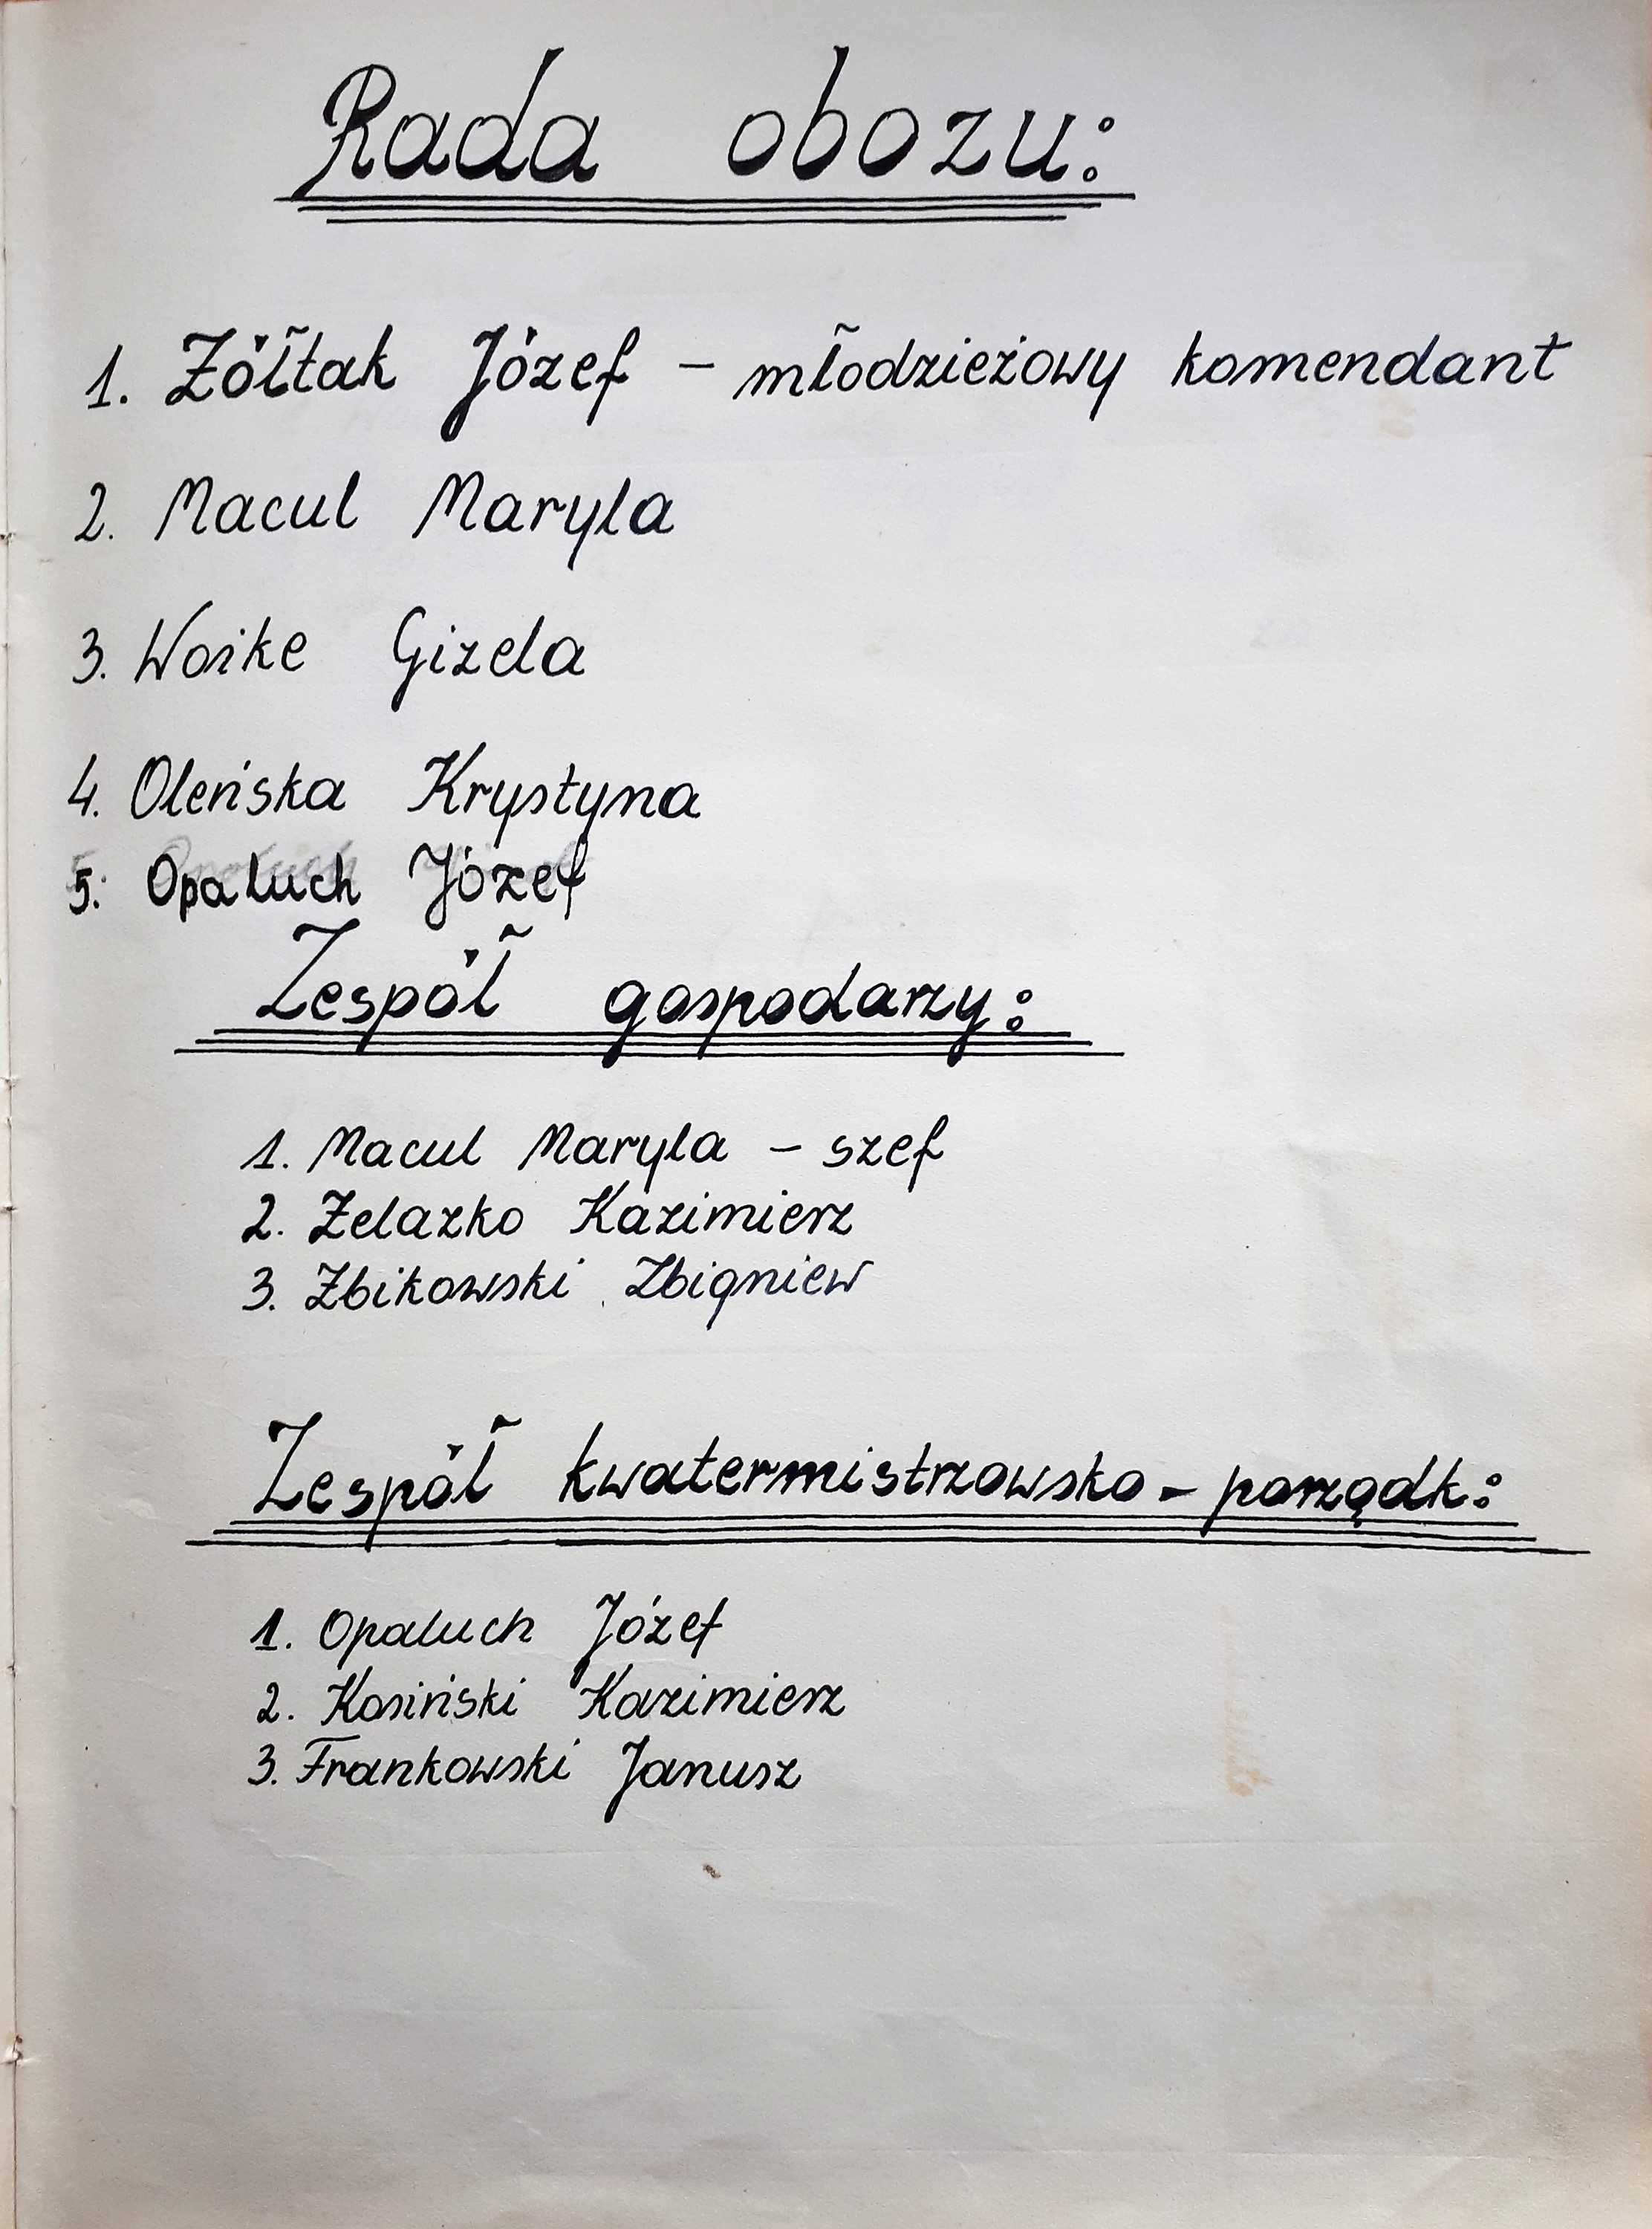 Rada obozu:
1. Żółtak Józef – młodzieżowy komendant
2. Macul Maryla
3. Woike Gizela
4. Oleńska Krystyna
5. Opaluch Józef
Zespół gospodarzy:
1. Macul Maryla – szef
2. Żelazko Kazimierz
3. Żbikowski Zbigniew
Zespół kwatermistrzowsko – porządk:
1. Opaluch Józef
2. Kosiński Kazimierz
3. Frankowski Janusz